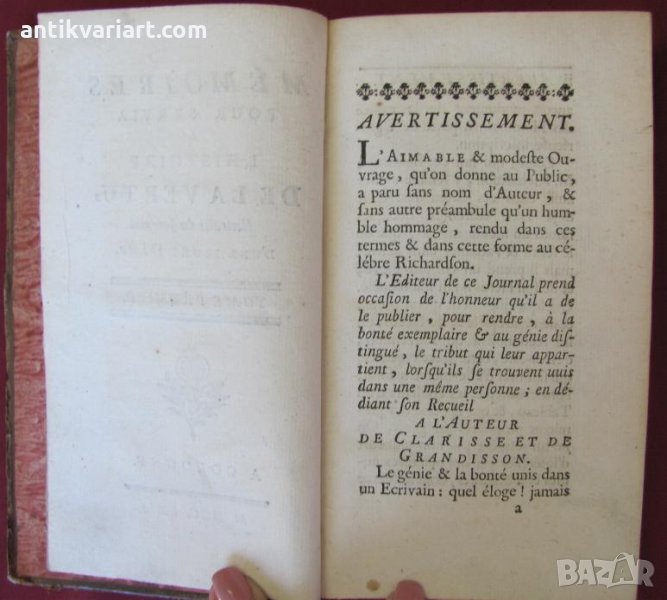 antikvariart.com
AVERTISSEMENT.
L'AIMABLE & modeſte Ou-
vrage, qu'on donne au Public,
a paru ſans nom d'Auteur, &
ſans autre préambule qu'un hum-
ble hommage, rendu dans ces
termes & dans cette forme au cé-
lébre Richardſon.
L'Editeur de ce Journal prend
occaſion de l'honneur qu'il a de
le publier, pour rendre, à la
bonté exemplaire & au génie diſ-
tingué, le tribut qui leur appar-
tient, lorſqu'ils ſe trouvent uuis
dans une même perſonne; en dé-
diant ſon Recueil
A L'AUTEUR
DE CLARISSE ET DE
GRANDISSON.
Le génie & la bonté unis dans
un Ecrivain: quel éloge! jamais
a
BAZAR